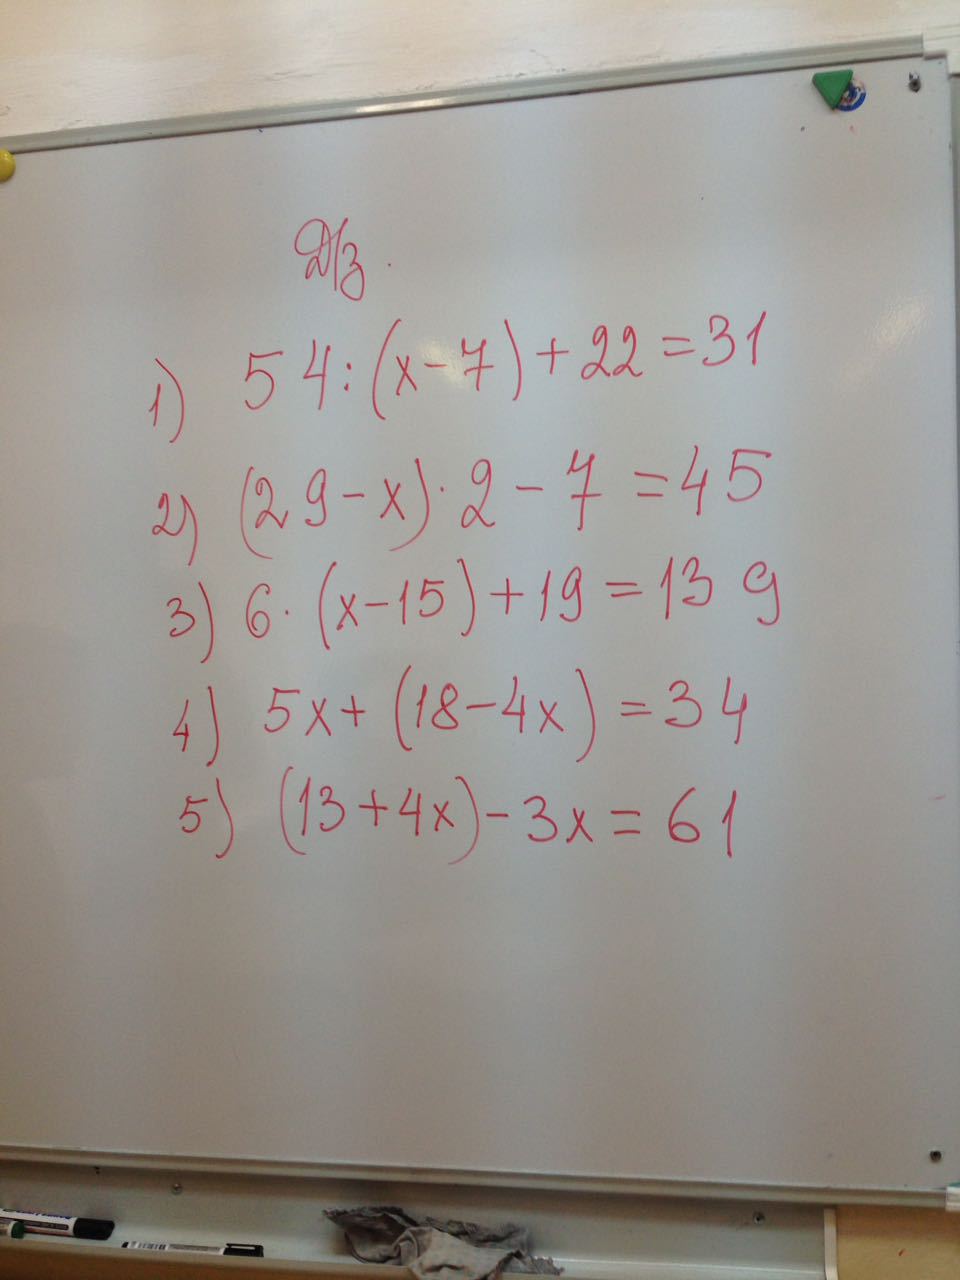 Д/з.
1) 54:(x-7)+22=31
2) (29-x)·2-7=45
3) 6·(x-15)+19=139
4) 5x+(18-4x)=34
5) (13+4x)-3x=61